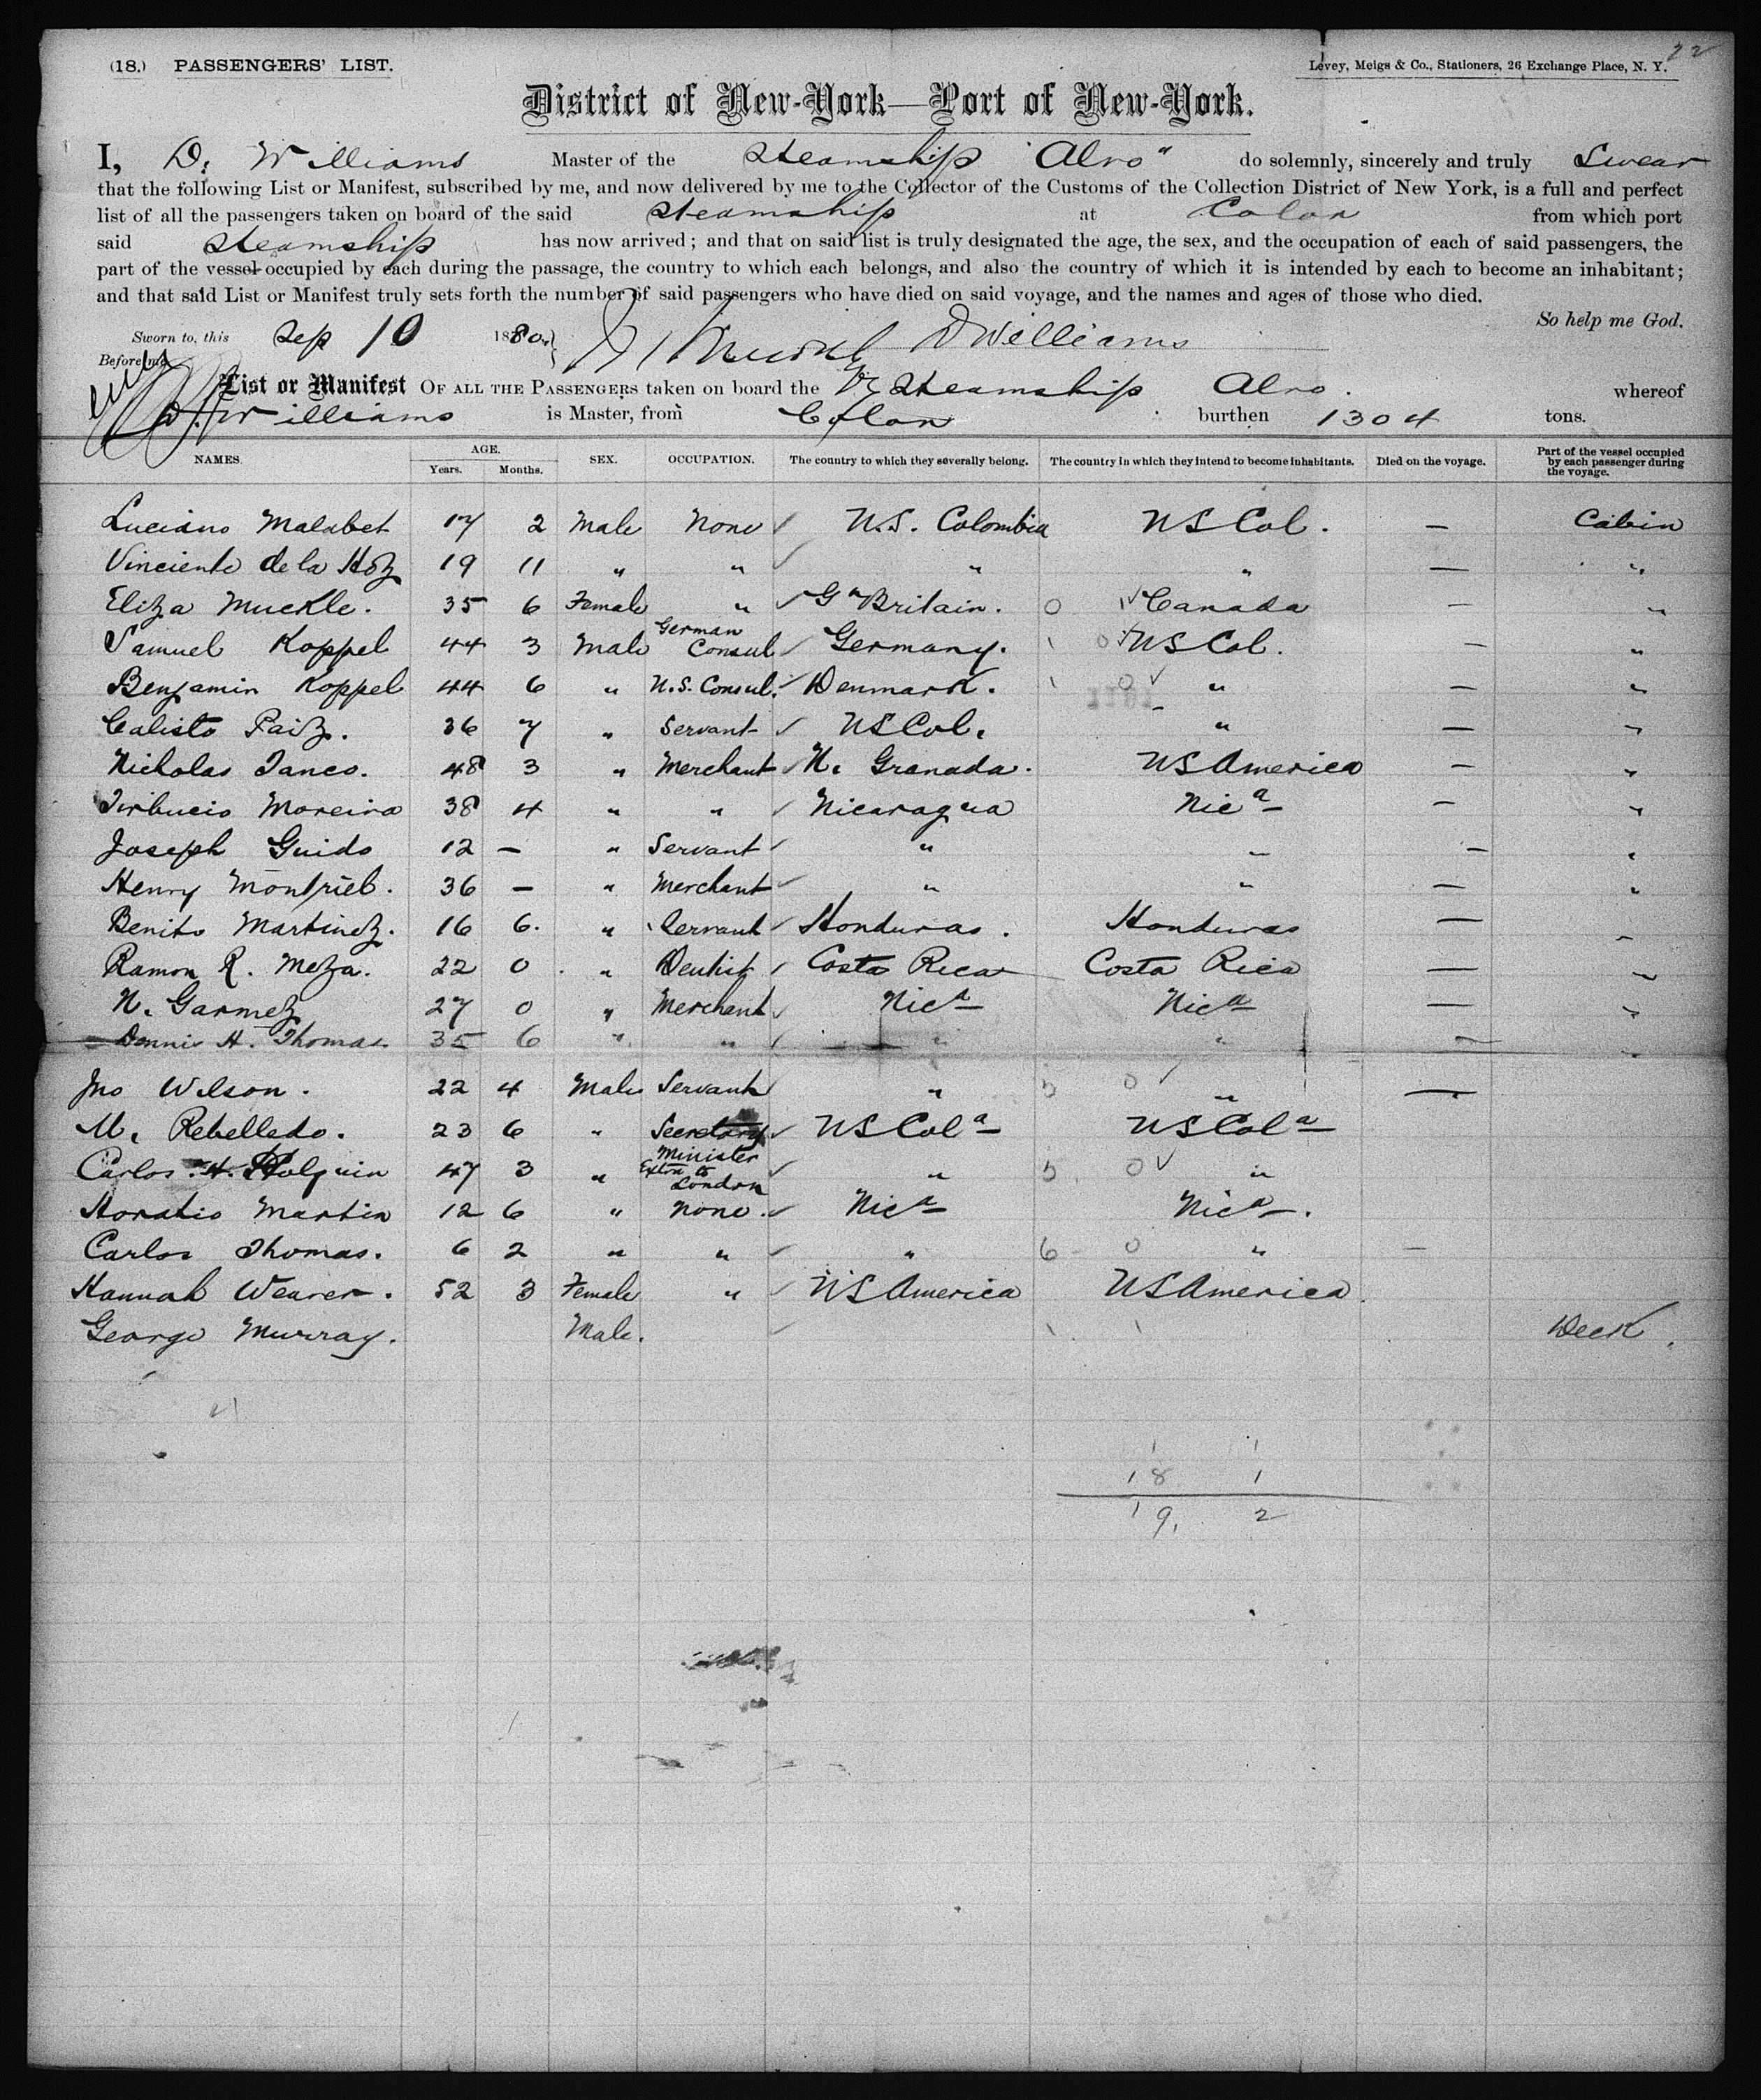 22
(18.) PASSENGERS' LIST.
Levey, Meigs & Co., Stationers, 26 Exchange Place, N. Y.
District of New-York—Port of New-York.
I, D. Williams Master of the Steamship "Alvo" do solemnly, sincerely and truly Swear
that the following List or Manifest, subscribed by me, and now delivered by me to the Collector of the Customs of the Collection District of New York, is a full and perfect
list of all the passengers taken on board of the said Steamship at Colon from which port
said Steamship has now arrived; and that on said list is truly designated the age, the sex, and the occupation of each of said passengers, the
part of the vessel occupied by each during the passage, the country to which each belongs, and also the country of which it is intended by each to become an inhabitant;
and that said List or Manifest truly sets forth the number of said passengers who have died on said voyage, and the names and ages of those who died.
So help me God.
Sworn to, this Sep 10 1880 D Williams
Before me
List or Manifest OF ALL THE PASSENGERS taken on board the Steamship Alvo. whereof
D. Williams is Master, from Colon burthen 1304 tons.
NAMES. AGE. Years. Months. SEX. OCCUPATION. The country to which they severally belong. The country in which they intend to become inhabitants. Died on the voyage. Part of the vessel occupied by each passenger during the voyage.
Luciano Malabet 17 2 Male None U.S. Colombia US Col. — Cabin
Vinciente de la Hoz 19 11 " " " " — "
Eliza Muckle. 35 6 Female " Gt Britain. 0 Canada — "
Samuel Koppel 44 3 Male German Consul Germany. 1 0 US Col. — "
Benjamin Koppel 44 6 " U.S. Consul. Denmark. 1 0 " — "
Calisto Paiz. 36 7 " Servant US Col. " — "
Nicholas Tanco. 48 3 " Merchant N. Granada. US America — "
Tirbucio Moreira 38 4 " " Nicaragua Nica — "
Joseph Guido 12 — " Servant " " — "
Henry Montriel. 36 — " Merchant " " — "
Benito Martinez. 16 6. " Servant Honduras. Honduras — "
Ramon R. Meza. 22 0 " Dentist Costa Rica Costa Rica — "
N. Garmez 27 0 " Merchant Nica Nica — "
Dennis H. Thomas 35 6 " " " " — "
Jno Wilson. 22 4 Male Servant " 5 0 " —
M. Rebelledo. 23 6 " Secretary US Cola US Cola
Carlos H. Holguin 47 3 " Minister Extra to London " 5 0 "
Horatio Martin 12 6 " None. Nica Nica.
Carlos Thomas. 6 2 " " " 6 0 " —
Hannah Weaver. 52 3 Female " US America US America
George Murray. Male. Deck.
1 1
18 1
19 2